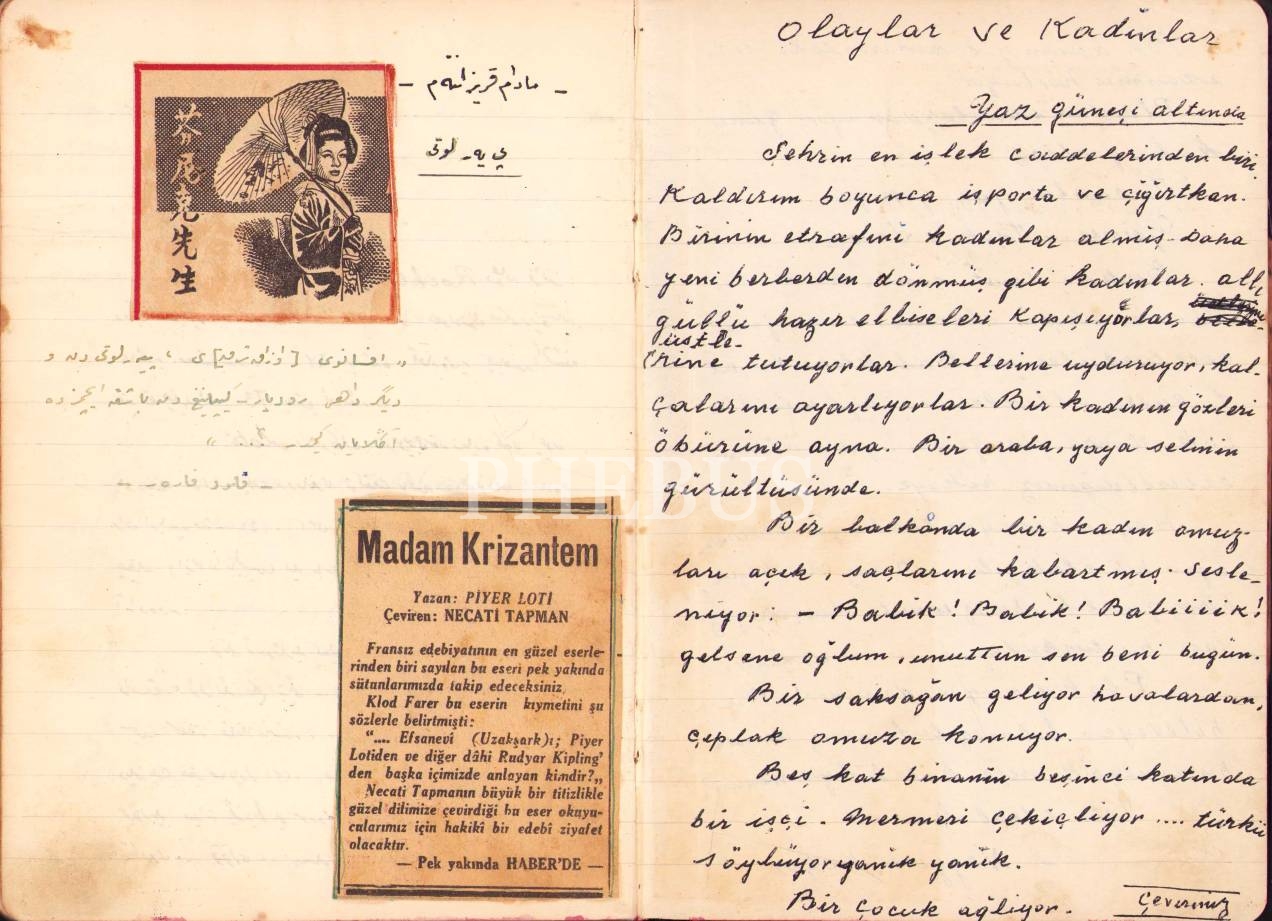 - مادام قریزانتەم -
پی یەر لوتی
芥
先
生
„ افسانوی [اوزاق شرق]ی ، پیەر لوتی دن و
دیگر داهی رودیار کیپلینغ دن باشقە ایچمزدە
آڭلایان کیمدر ؟ “
- قلود فارەر -
Madam Krizantem
Yazan: PİYER LOTİ
Çeviren: NECATİ TAPMAN
Fransız edebiyatının en güzel eserle-
rinden biri sayılan bu eseri pek yakında
sütunlarımızda takip edeceksiniz.
Klod Farer bu eserin kıymetini şu
sözlerle belirtmişti:
“.... Efsanevî (Uzakşark)ı; Piyer
Lotiden ve diğer dâhi Rudyar Kipling’
den başka içimizde anlayan kimdir?„
Necati Tapmanın büyük bir titizlikle
güzel dilimize çevirdiği bu eser okuyu-
cularımız için hakikî bir edebî ziyafet
olacaktır.
— Pek yakında HABER'DE —
PHEBUS
Olaylar ve Kadınlar
Yaz güneşi altında
Şehrin en işlek caddelerinden biri.
Kaldırım boyunca işporta ve çığırtkan.
Birinin etrafını kadınlar almış. Daha
yeni berberden dönmüş gibi kadınlar. allı
güllü hazır elbiseleri kapışıyorlar,
üstle-
rine tutuyorlar. Bellerine uyduruyor, kal-
çalarını ayarlıyorlar. Bir kadının gözleri
öbürüne ayna. Bir araba, yaya selinin
gürültüsünde.
Bir balkonda bir kadın omuz-
ları açık, saçlarını kabartmış. Sesle-
niyor: - Babik! Babik! Babiiiik!
gelsene oğlum, unuttun sen beni bugün.
Bir saksağan geliyor havalardan,
çıplak omuza konuyor.
Beş kat binanın beşinci katında
bir işçi. Mermeri çekiçliyor .... türkü
söylüyor yanık yanık.
Bir çocuk ağlıyor.
Çeviriniz